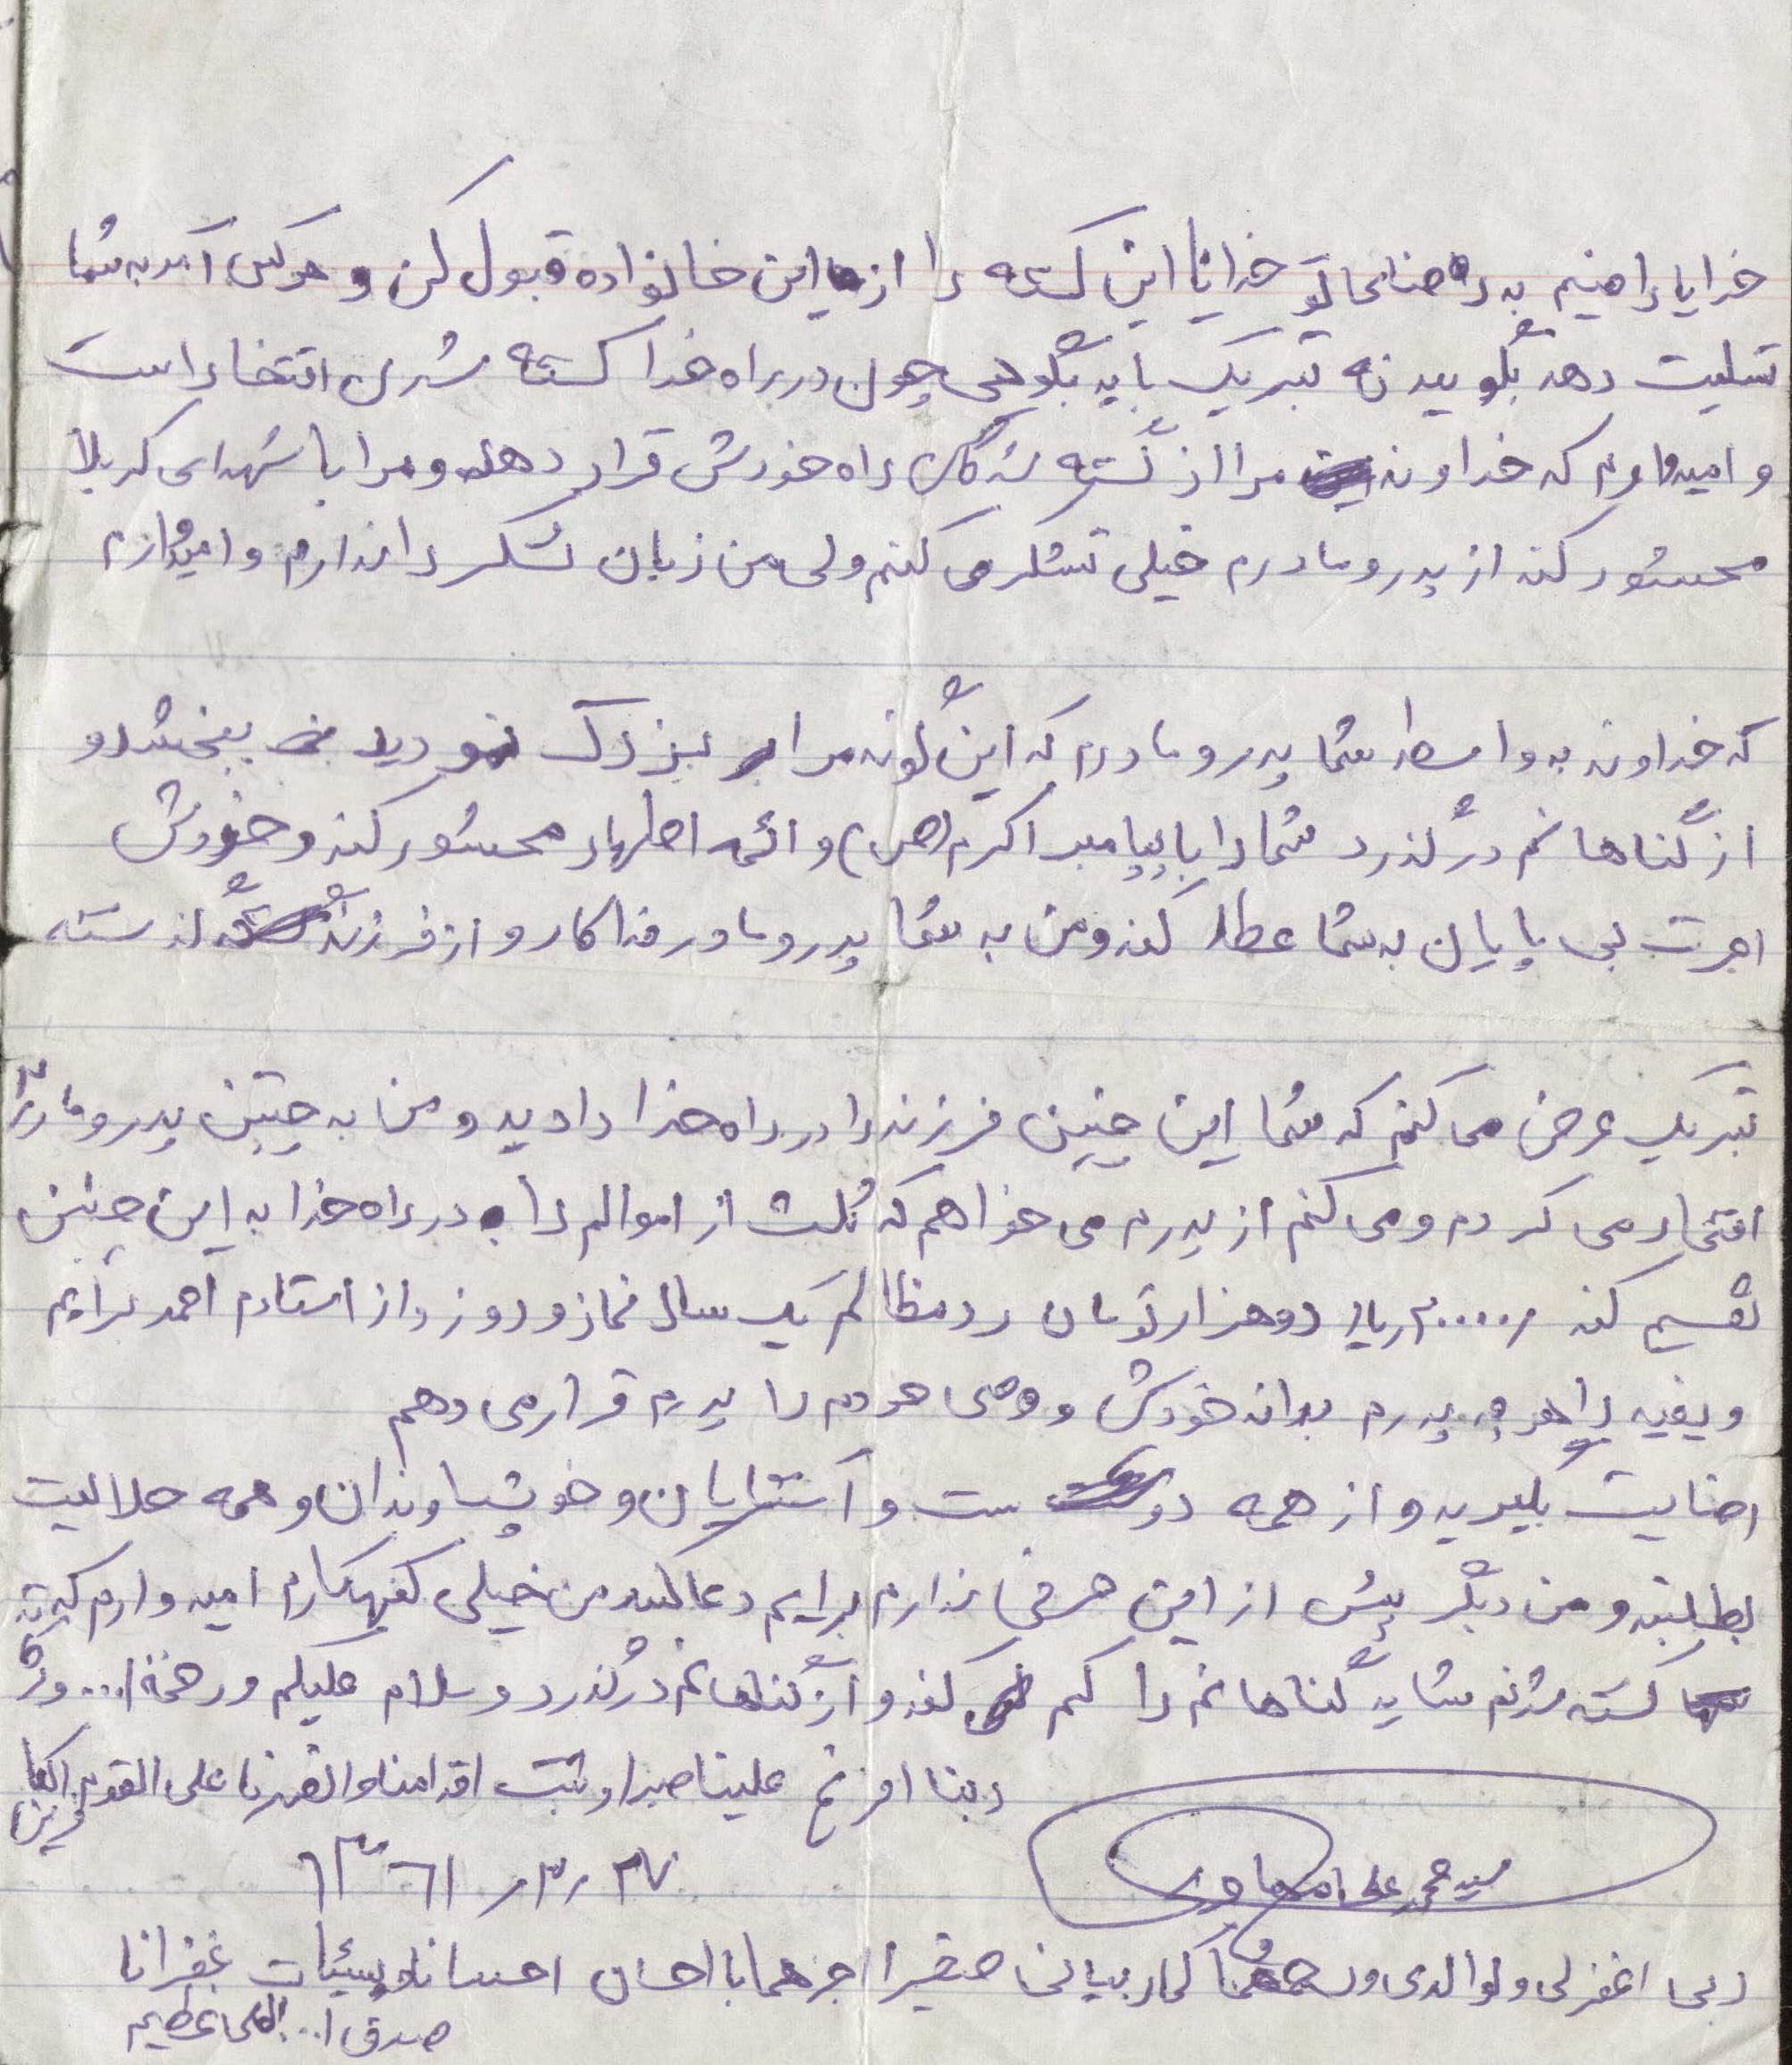 خدایا راضیم به رضای تو خدایا این کشته را از این خانواده قبول کن و هر کس آمد به شما
تسلیت دهد بگویید نه تبریک باید بگوهی چون در راه خدا کشته شدن افتخار است
و امیدوارم که خداوند مرا از کشته شدگان راه خودش قرار دهد و مرا با شهدای کربلا
محشور کند از پدر و مادرم خیلی تشکر می کنم ولی من زبان تشکر را ندارم و امیدوارم
که خداوند به واسطه شما پدر و مادرم که این گونه مرا بزرگ نمودید ببخشد و
از گناهانم درگذرد شما را با پیامبر اکرم (ص) و ائمه اطهار محشور کند و خودش
اجرت بی پایان به شما عطا کند و من به شما پدر و مادر فداکار و از فرزند گذشته
تبریک عرض می کنم که شما این چنین فرزند را در راه خدا دادید و من به چنین پدر و مادر
افتخار می کردم و می کنم از پدرم می خواهم که ثلث از اموالم را در راه خدا به این چنین
تقسیم کند ۲۰۰۰۰ ریال دو هزار تومان رد مظالم یک سال نماز و روزه از استادم احمد برایم
و بقیه را هر چه پدرم بداند خودش و وصی خودم را پدرم قرار می دهم
رضایت بگیرید و از همه دوست و آشنایان و خویشاوندان و همه حلالیت
بطلبند و من دیگر بیش از این حرفی ندارم برایم دعا کنید من خیلی گنهکارم امیدوارم که
کشته شدنم شاید گناهانم را کم کند و از گناهانم درگذرد و سلام علیکم و رحمة ا...
ربنا افرغ علینا صبرا و ثبت اقدامنا و انصرنا علی القوم الکافرین
سید محمد علی
۲۷ ر ۳ ر ۱۳۶۱
ربی اغفرلی و لوالدی و رحمهما کما ربیانی صغیرا اجزهما با احسان احسانا و بسیئات غفرانا
صدق ا... العلی عظیم